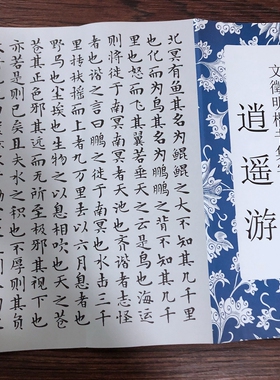 文徵
逍遥游
北冥有鱼其名为鲲鲲之大不知其几千里
也化而为鸟其名为鹏鹏之背不知其几千
里也怒而飞其翼若垂天之云是鸟也海运
则将徙于南冥南冥者天池也齐谐者志怪
者也谐之言曰鹏之徙于南冥也水击三千
里抟扶摇而上者九万里去以六月息者也
野马也尘埃也生物之以息相吹也天之苍
苍其正色邪其远而无所至极邪其视下也
亦若是则已矣且夫水之积也不厚则其负